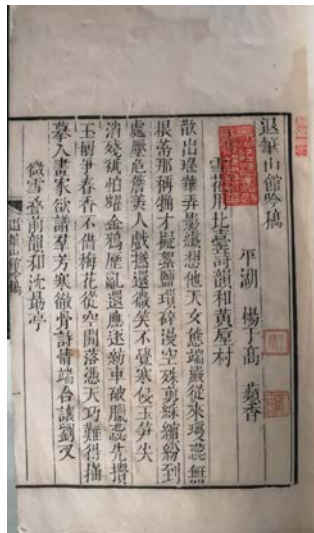 退筆山館吟稿
平湖 楊于高 薌香
雪花用北臺詩韻和黃屋村
散出瑤華弄影纖想他天女態端嚴從來瓊蕊無
根蒂那稱才擬絮鹽瓊碎漫空殊翦綵繽紛到
處壓危簷美人戲撚還微笑不覺寒侵玉筍尖
消殘祇怕躍金鴉歷亂還應迷紛車破臘蕊先攢
玉樹爭春香不借梅花從空開落憑天巧難得描
摹入畫家欲譜羣芳寒徹骨詩情端合讓劉叉
微雪叠前韻和沈亭